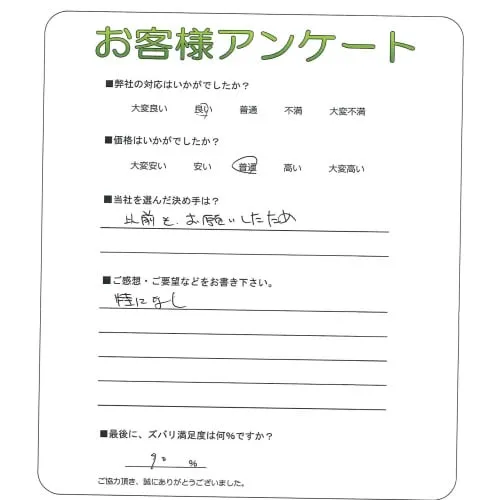 お客様アンケート
■弊社の対応はいかがでしたか?
大変良い 良い 普通 不満 大変不満
■価格はいかがでしたか?
大変安い 安い 普通 高い 大変高い
■当社を選んだ決め手は?
以前も、お願いしたため
■ご感想・ご要望などをお書き下さい。
特になし
■最後に、ズバリ満足度は何%ですか?
90 %
ご協力頂き、誠にありがとうございました。